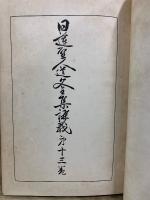 日蓮聖人遺文全集講義第十三巻